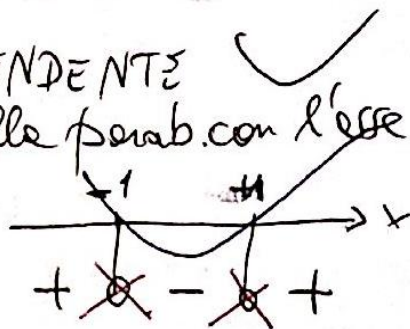 ENDENTE
lla parab. con l'asse
-1 +1
x
+ - +